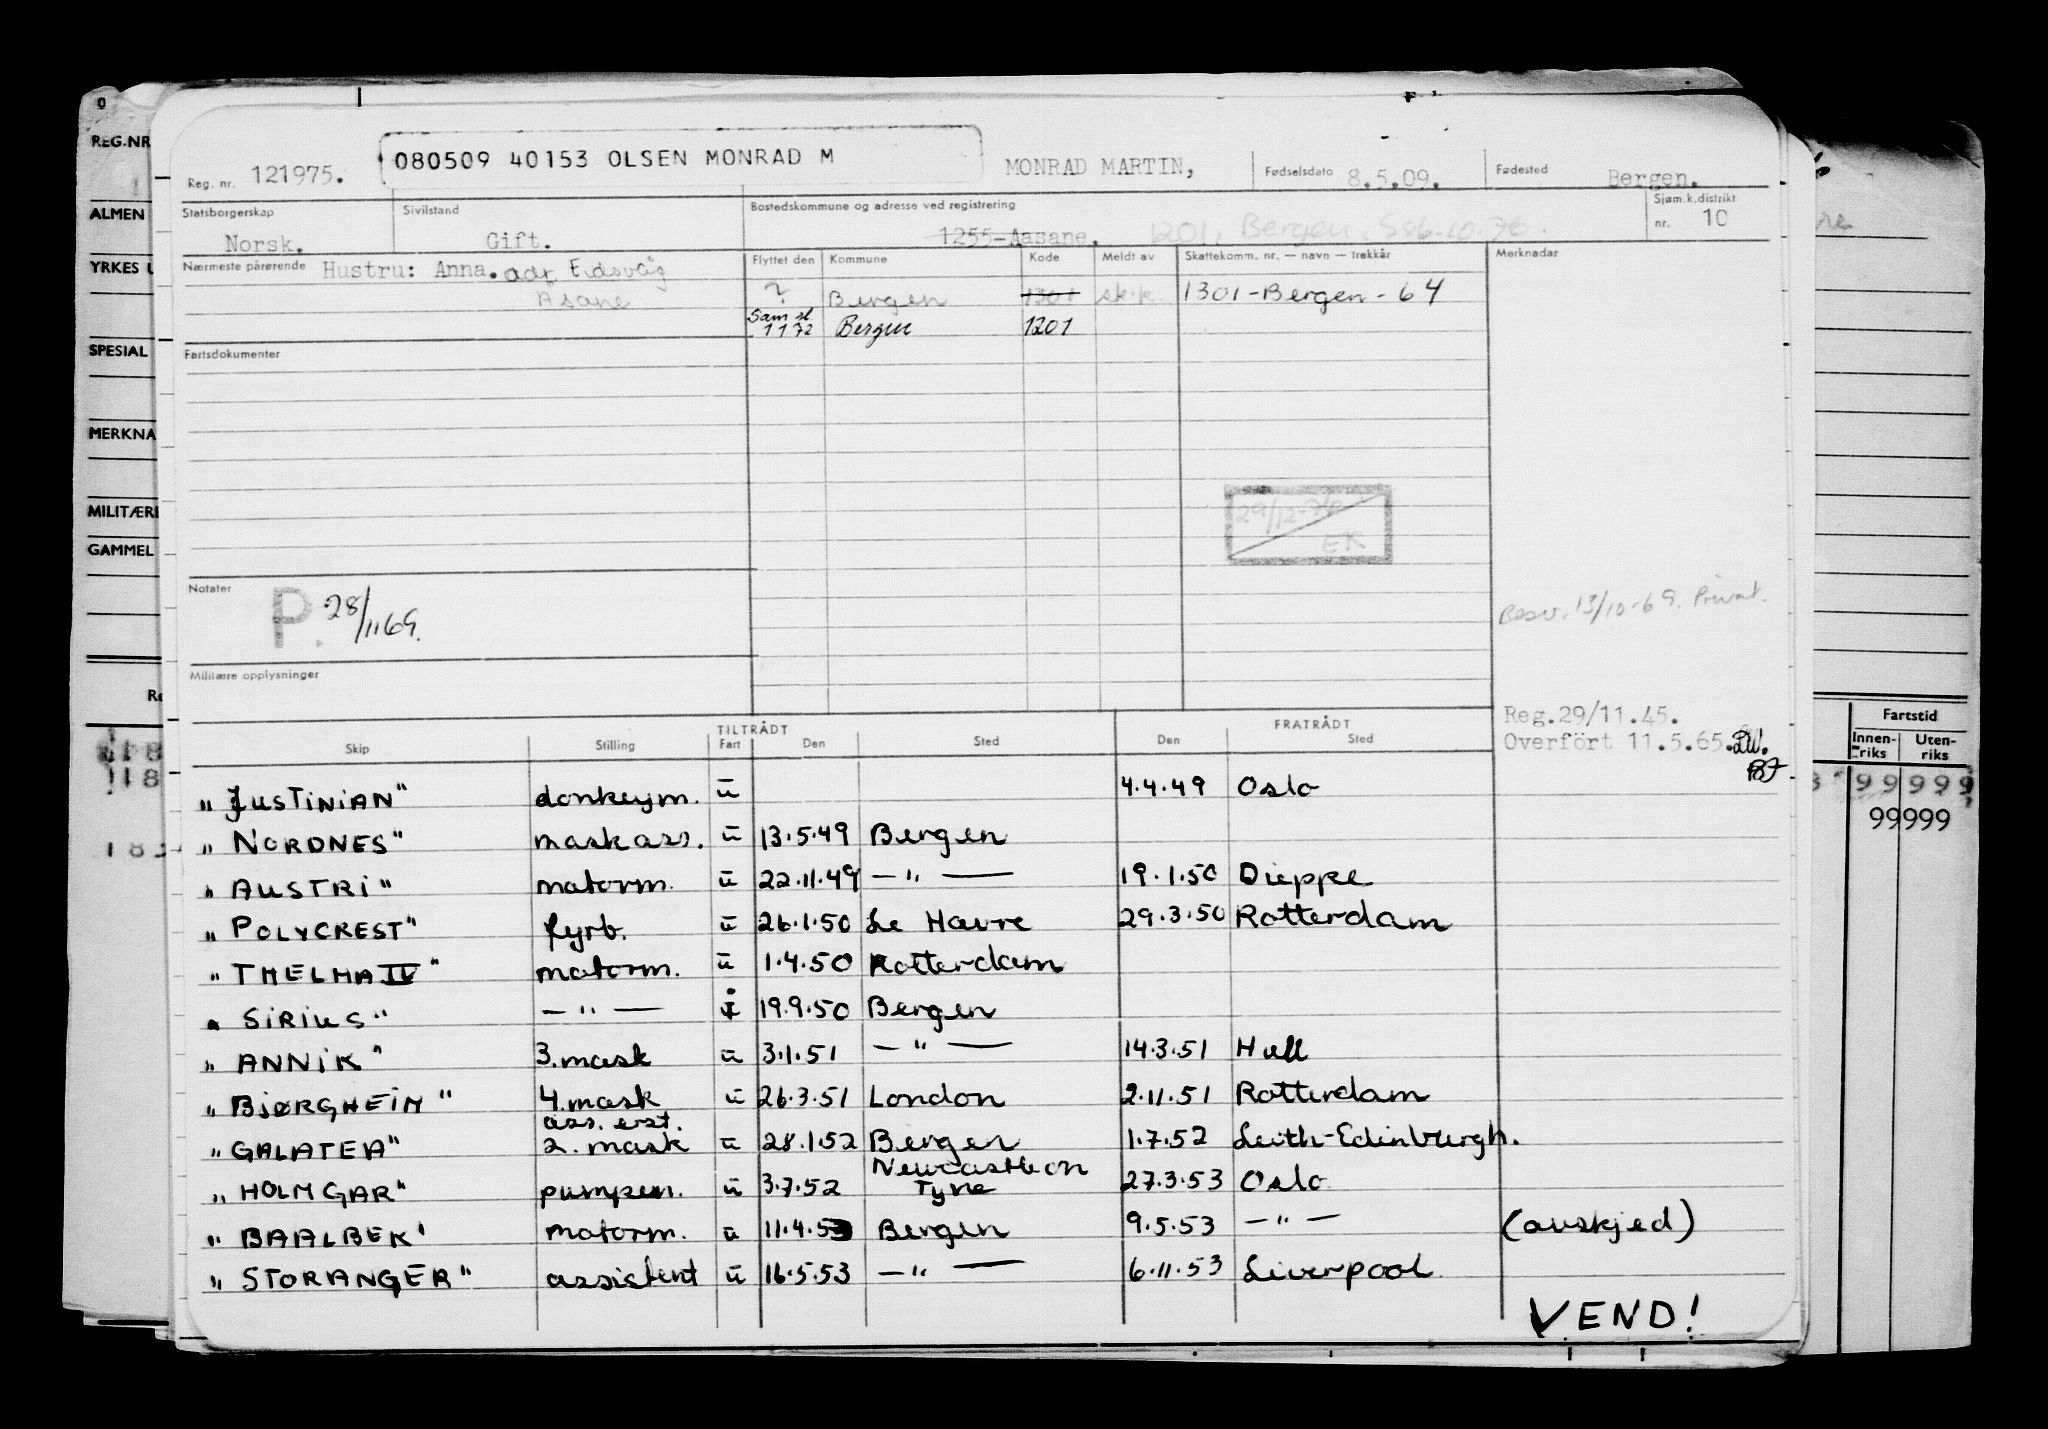 REG.NR
ALMEN
YRKES
SPESIAL
MERKNA
MILITÆRE
GAMMEL
Reg. nr. 121975. 080509 40153 OLSEN MONRAD M MONRAD MARTIN, Fødselsdato 8.5.09. Fødested Bergen.
Statsborgerskap Norsk. Sivilstand Gift. Bostedskommune og adresse ved registrering 1255-Aasane. 1201, Bergen, Ss6.10.76. Sjøm.k.distrikt nr. 10
Nærmeste pårørende Hustru: Anna. adr Eidsvåg Flyttet den Kommune Kode Meldt av Skattekomm. nr. — navn — trekkår Merknader
Åsane ? Bergen 1301 sk.k. 1301-Bergen-64
Sam sl 1 1 72 Bergen 1201
Fartsdokumenter
29/12-76
EK
Notater P. 28/11 69.
Besv. 13/10-69. Privat.
Militære opplysninger
Reg.29/11.45.
Overført 11.5.65.
TILTRÅDT FRATRÅDT
Skip Stilling Fart Den Sted Den Sted
Fartstid
Innen-riks Uten-riks
99999
99999
"JUSTINIAN" donkeym. u 4.4.49 Oslo
"NORDNES" mask ass. u 13.5.49 Bergen
"AUSTRI" motorm. u 22.11.49 — " — 19.1.50 Dieppe
"POLYCREST" fyrb. u 26.1.50 Le Havre 29.3.50 Rotterdam
"THELMA IV" motorm. u 1.4.50 Rotterdam
"SIRIUS" — " — i 19.9.50 Bergen
"ANNIK" 3.mask u 3.1.51 — " — 14.3.51 Hull
"BJØRGHEIM" 4.mask u 26.3.51 London 2.11.51 Rotterdam
"GALATEA" ass. erst. 2. mask u 28.1.52 Bergen 1.7.52 Leith-Edinburgh.
"HOLMGAR" pumpem. u 3.7.52 Newcastle on Tyne 27.3.53 Oslo
"BAALBEK" motorm. u 11.4.53 Bergen 9.5.53 — " — (avskjed)
"STORANGER" assistent u 16.5.53 — " — 6.11.53 Liverpool
VEND!